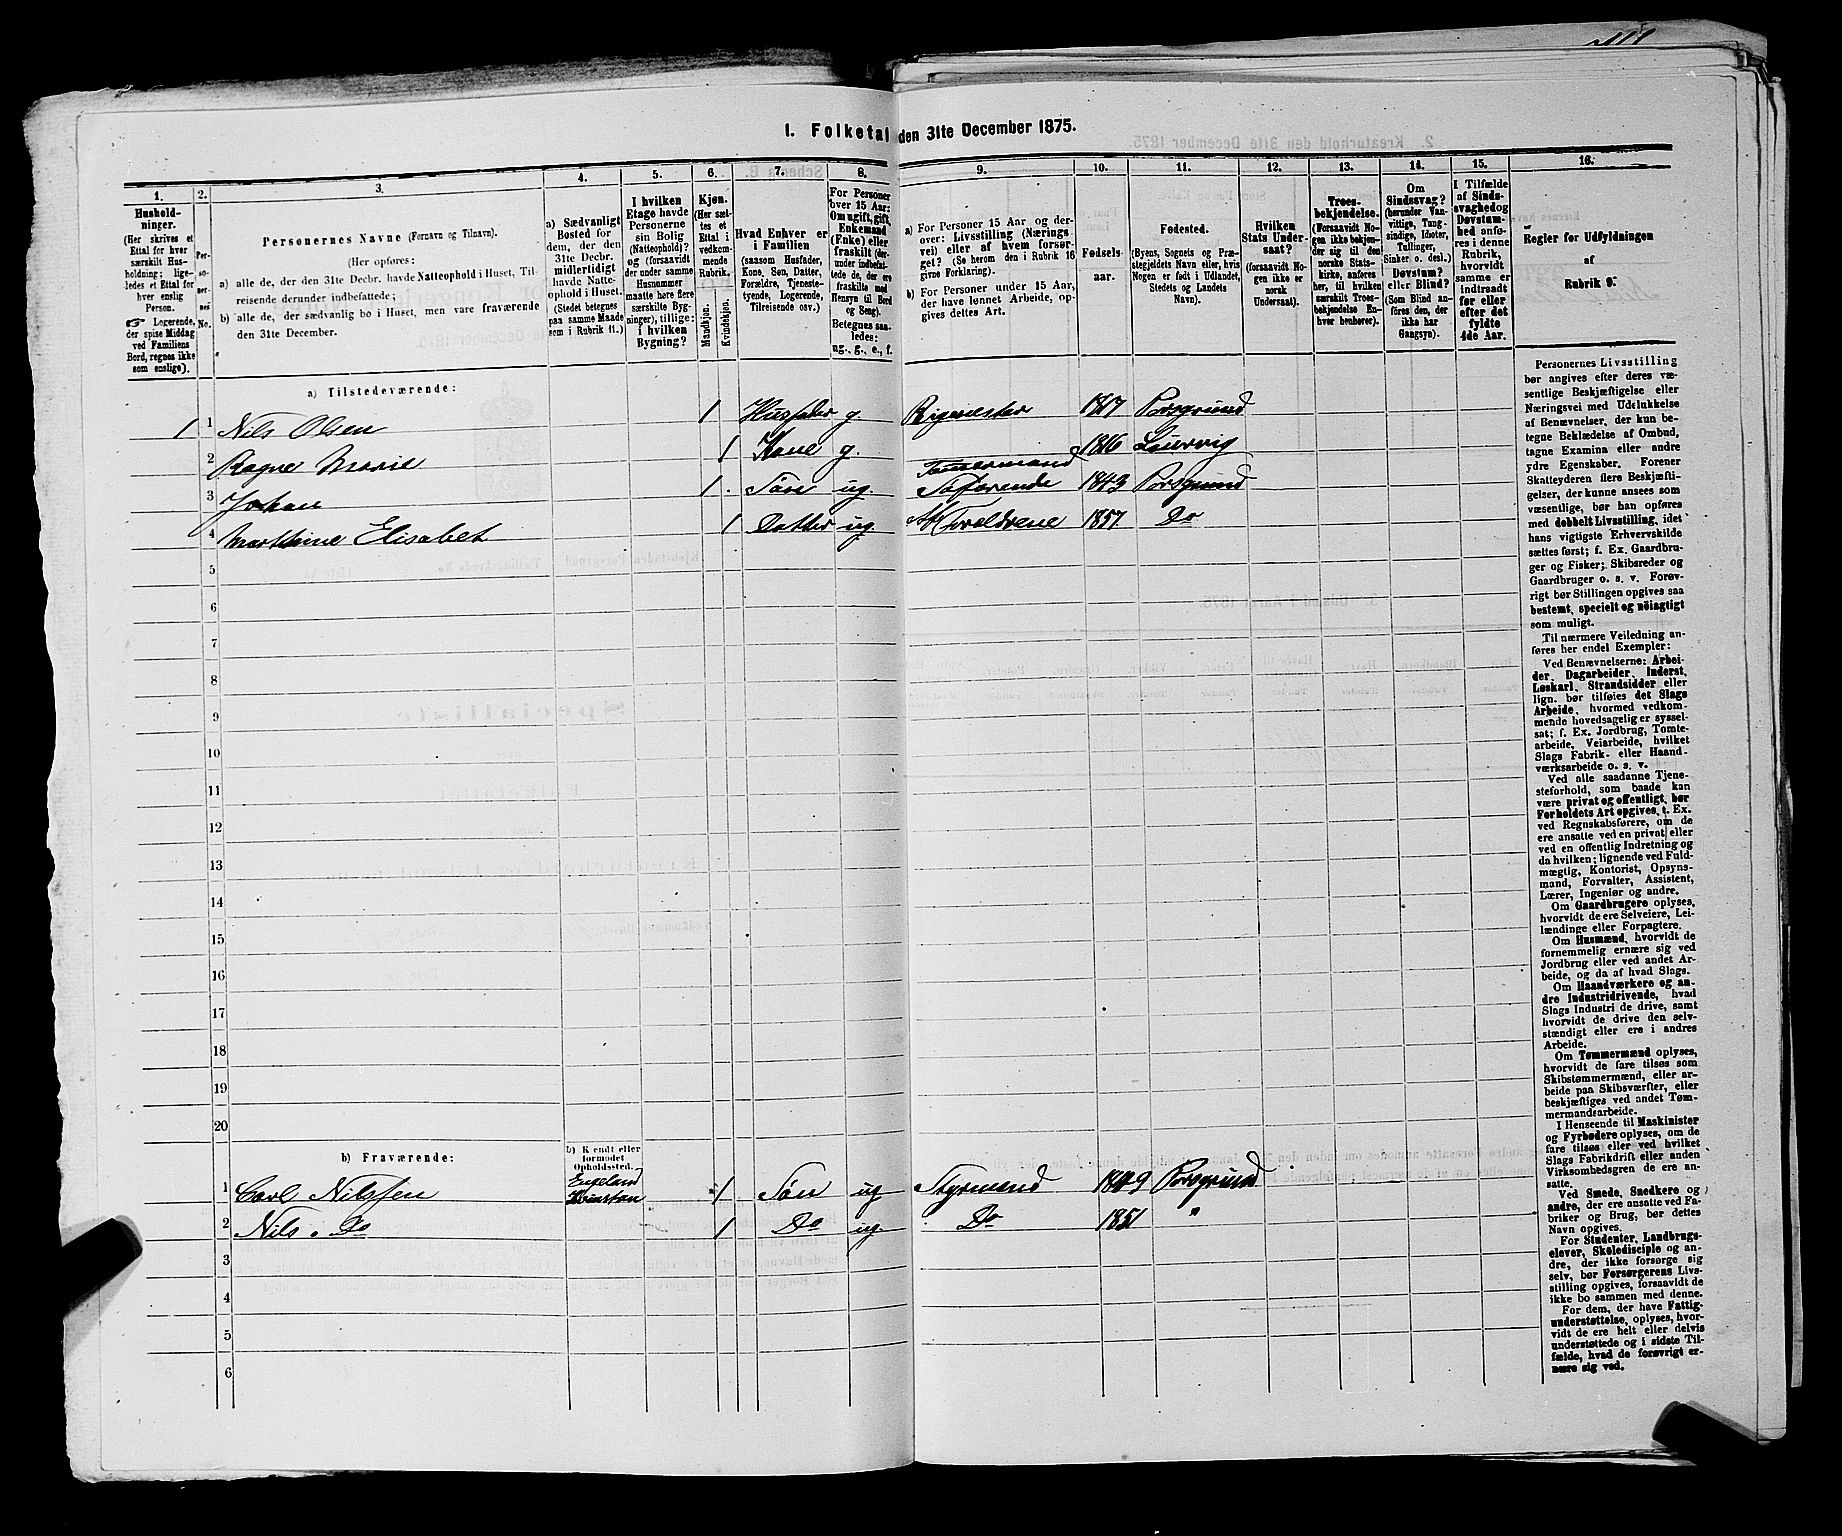 1. Folketal den 31te December 1875.
1.
Hushold-
ninger.
(Her skrives et
Ettal for hver
særskilt Hus-
holdning; lige-
ledes et Ettal for
hver enslig
Person.
☞ Logerende,
der spise Middag
ved Familiens
Bord, regnes ikke
som enslige).
2.
Per-
so-
ner-
nes
No.
3.
Personernes Navne (Fornavn og Tilnavn).
(Her opføres:
a) alle de, der den 31te Decbr. havde Natteophold i Huset, Til-
reisende derunder indbefattede;
b) alle de, der sædvanlig bo i Huset, men vare fraværende
den 31te December.
4.
a) Sædvanligt
Bosted for
dem, der den
31te Decbr.
midlertidigt
havde Natte-
ophold i Huset,
(Stedet betegnes
paa samme Maade
som i Rubrik 11.)
5.
I hvilken
Etage havde
Personerne
sin Bolig
(Natteophold)?
og (forsaavidt
der under samme
Husnummer
maatte høre flere
særskilte Byg-
ninger), tillige:
i hvilken
Bygning?
6.
Kjøn.
(Her sæt-
tes et
Ettal i
vedkom-
mende
Rubrik.
Mandkjøn.
Kvindekjøn.
7.
Hvad Enhver er
i Familien
(saasom Husfader,
Kone, Søn, Datter,
Forældre, Tjeneste-
tyende, Logerende,
Tilreisende osv.)
8.
For Personer
over 15 Aar:
Om ugift, gift,
Enkemand
(Enke) eller
fraskilt (der-
under indbefat-
tede de, der ere
fraskilte med
Hensyn til Bord
og Seng).
Betegnes saa-
ledes:
ug., g., e., f.
9.
a) For Personer 15 Aar og der-
over: Livsstilling (Nærings-
vei) eller af hvem forsør-
get? (Se herom den i Rubrik 16
givne Forklaring).
b) For Personer under 15 Aar,
der have lønnet Arbeide, op-
gives dettes Art.
10.
Fødsels-
aar.
11.
Fødested.
(Byens, Sognets og Præ-
stegjeldets Navn eller, hvis
Nogen er født i Udlandet,
Stedets og Landets
Navn).
12.
Hvilken
Stats Under-
saat?
(forsaavidt No-
gen ikke er
norsk
Undersaat).
13.
Troes-
bekjendelse.
(Forsaavidt No-
gen ikke bekjen-
der sig til den
norske Stats-
kirke, anføres
her, til hvilken
særskilt Troes-
bekjendelse En-
hver henhører).
14.
Om
Sindssvag?
(herunder Van-
vittige, Tung-
sindige, Idioter,
Tullinger,
Sinker o. desl.)
Døvstum?
eller Blind?
(Som Blind an-
føres den, der
ikke har
Gangsyn).
15.
I Tilfælde
af Sinds-
svaghed og
Døvstum-
hed anfø-
res i denne
Rubrik,
hvorvidt
samme er
indtraadt
før eller
efter det
fyldte
4de Aar.
16.
Regler for Udfyldningen
af
Rubrik 9.
a) Tilstedeværende:
1 1 Nils Olsen 1 Husfader g Rigmester 1817 Porsgrund
2 Ragne Marie 1 Kone g. 1816 Laurvig
3 Johan 1 Søn ug. Tømmermand Søfarende 1843 Porsgrund
4 Marthine Elisabet 1 Datter ug Af Forældrene 1857 Do
5
6
7
8
9
10
11
12
13
14
15
16
17
18
19
20
b) Fraværende:
b) Kendt eller
formodet
Opholdssted.
1 Carl Nilssen Engeland 1 Søn ug Styrmand 1849 Porsgrund
2 Nils " Do 1 Do ug. Do 1851 "
3
4
5
6
Personernes Livsstilling
bør angives efter deres væ-
sentlige Beskjæftigelse eller
Næringsvei med Udelukkelse
af Benævnelser, der kun be-
tegne Beklædelse af Ombud,
tagne Examina eller andre
ydre Egenskaber. Forener
Skatteyderen flere Beskjæfti-
gelser, der kunne ansees som
væsentlige, bør han opføres
med dobbelt Livsstilling, idet
hans vigtigste Erhvervskilde
sættes først; f. Ex. Gaardbru-
ger og Fisker; Skibsreder og
Gaardbruger o. s. v. Forøv-
rigt bør Stillingen opgives saa
bestemt, specielt og nöiagtigt
som muligt.
Til nærmere Veiledning an-
føres her endel Exempler:
Ved Benævnelserne: Arbei-
der, Dagarbeider, Inderst,
Løskarl, Strandsidder eller
lign. bør tilføies det Slags
Arbeide, hvormed vedkom-
mende hovedsagelig er syssel-
sat; f. Ex. Jordbrug, Tomte-
arbeide, Veiarbeide, hvilket
Slags Fabrik- eller Haand-
værksarbeide o. s. v.
Ved alle saadanne Tjene-
steforhold, som baade kan
være privat og offentligt, bør
Forholdets Art opgives, f. Ex.
ved Regnskabsførere, om de
ere ansatte ved en privat eller
ved en offentlig Indretning og
da hvilken; lignende ved Fuld-
mægtig, Kontorist, Opsyns-
mand, Forvalter, Assistent,
Lærer, Ingeniør og andre.
Om Gaardbrugere oplyses,
hvorvidt de ere Selveiere, Lei-
lændinge eller Forpagtere.
Om Husmænd, hvorvidt de
fornemmelig ernære sig ved
Jordbrug eller ved andet Ar-
beide, og da af hvad Slags.
Om Haandværkere og an-
dre Industridrivende, hvad
Slags Industri de drive, samt
hvorvidt de drive den selv-
stændigt eller ere i andres
Arbeide.
Om Tømmermænd oplyses,
hvorvidt de fare tilsøs som
Skibstømmermænd, eller ar-
beide paa Skibsværfter, eller
beskjæftiges ved andet Tøm-
mermandsarbeide.
I Henseende til Maskinister
og Fyrbødere oplyses, om de
fare tilsøs eller ved hvilket
Slags Fabrikdrift eller anden
Virksombedsgren de ere an-
satte.
Ved Smede, Snedkere og
andre, der ere ansatte ved Fa-
briker og Brug, bør dettes
Navn opgives.
For Studenter, Landbrugs-
elever, Skoledisciple og an-
dre, der ikke forsørge sig
selv, bør Forsørgerens Livs-
stilling opgives, forsaavidt de
ikke bo sammen med denne.
For dem, der have Fattig-
understøttelse, oplyses, hvor-
vidt de ere helt eller delvis
understøttede og i sidste Til-
fælde, hvad de forøvrigt er-
nære sig ved.